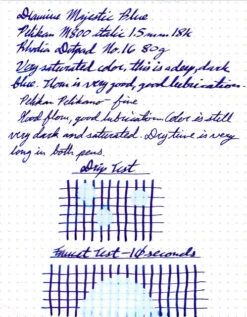 Diamine Majestic Blue
Pelikan M800 italic 1.5mm 18k
Rhodia Dotpad No. 16 80g
Very saturated color, this is a deep, dark
blue. Flow is very good, good lubrication.
Pelikan Pelikano - fine
Good flow, good lubrication. Color is still
very dark and saturated. Dry time is very
long in both pens.
Drip Test
Faucet Test - 10 seconds